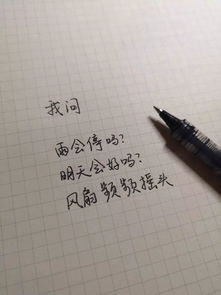 我问
雨会停吗?
明天会好吗?
风扇频频摇头